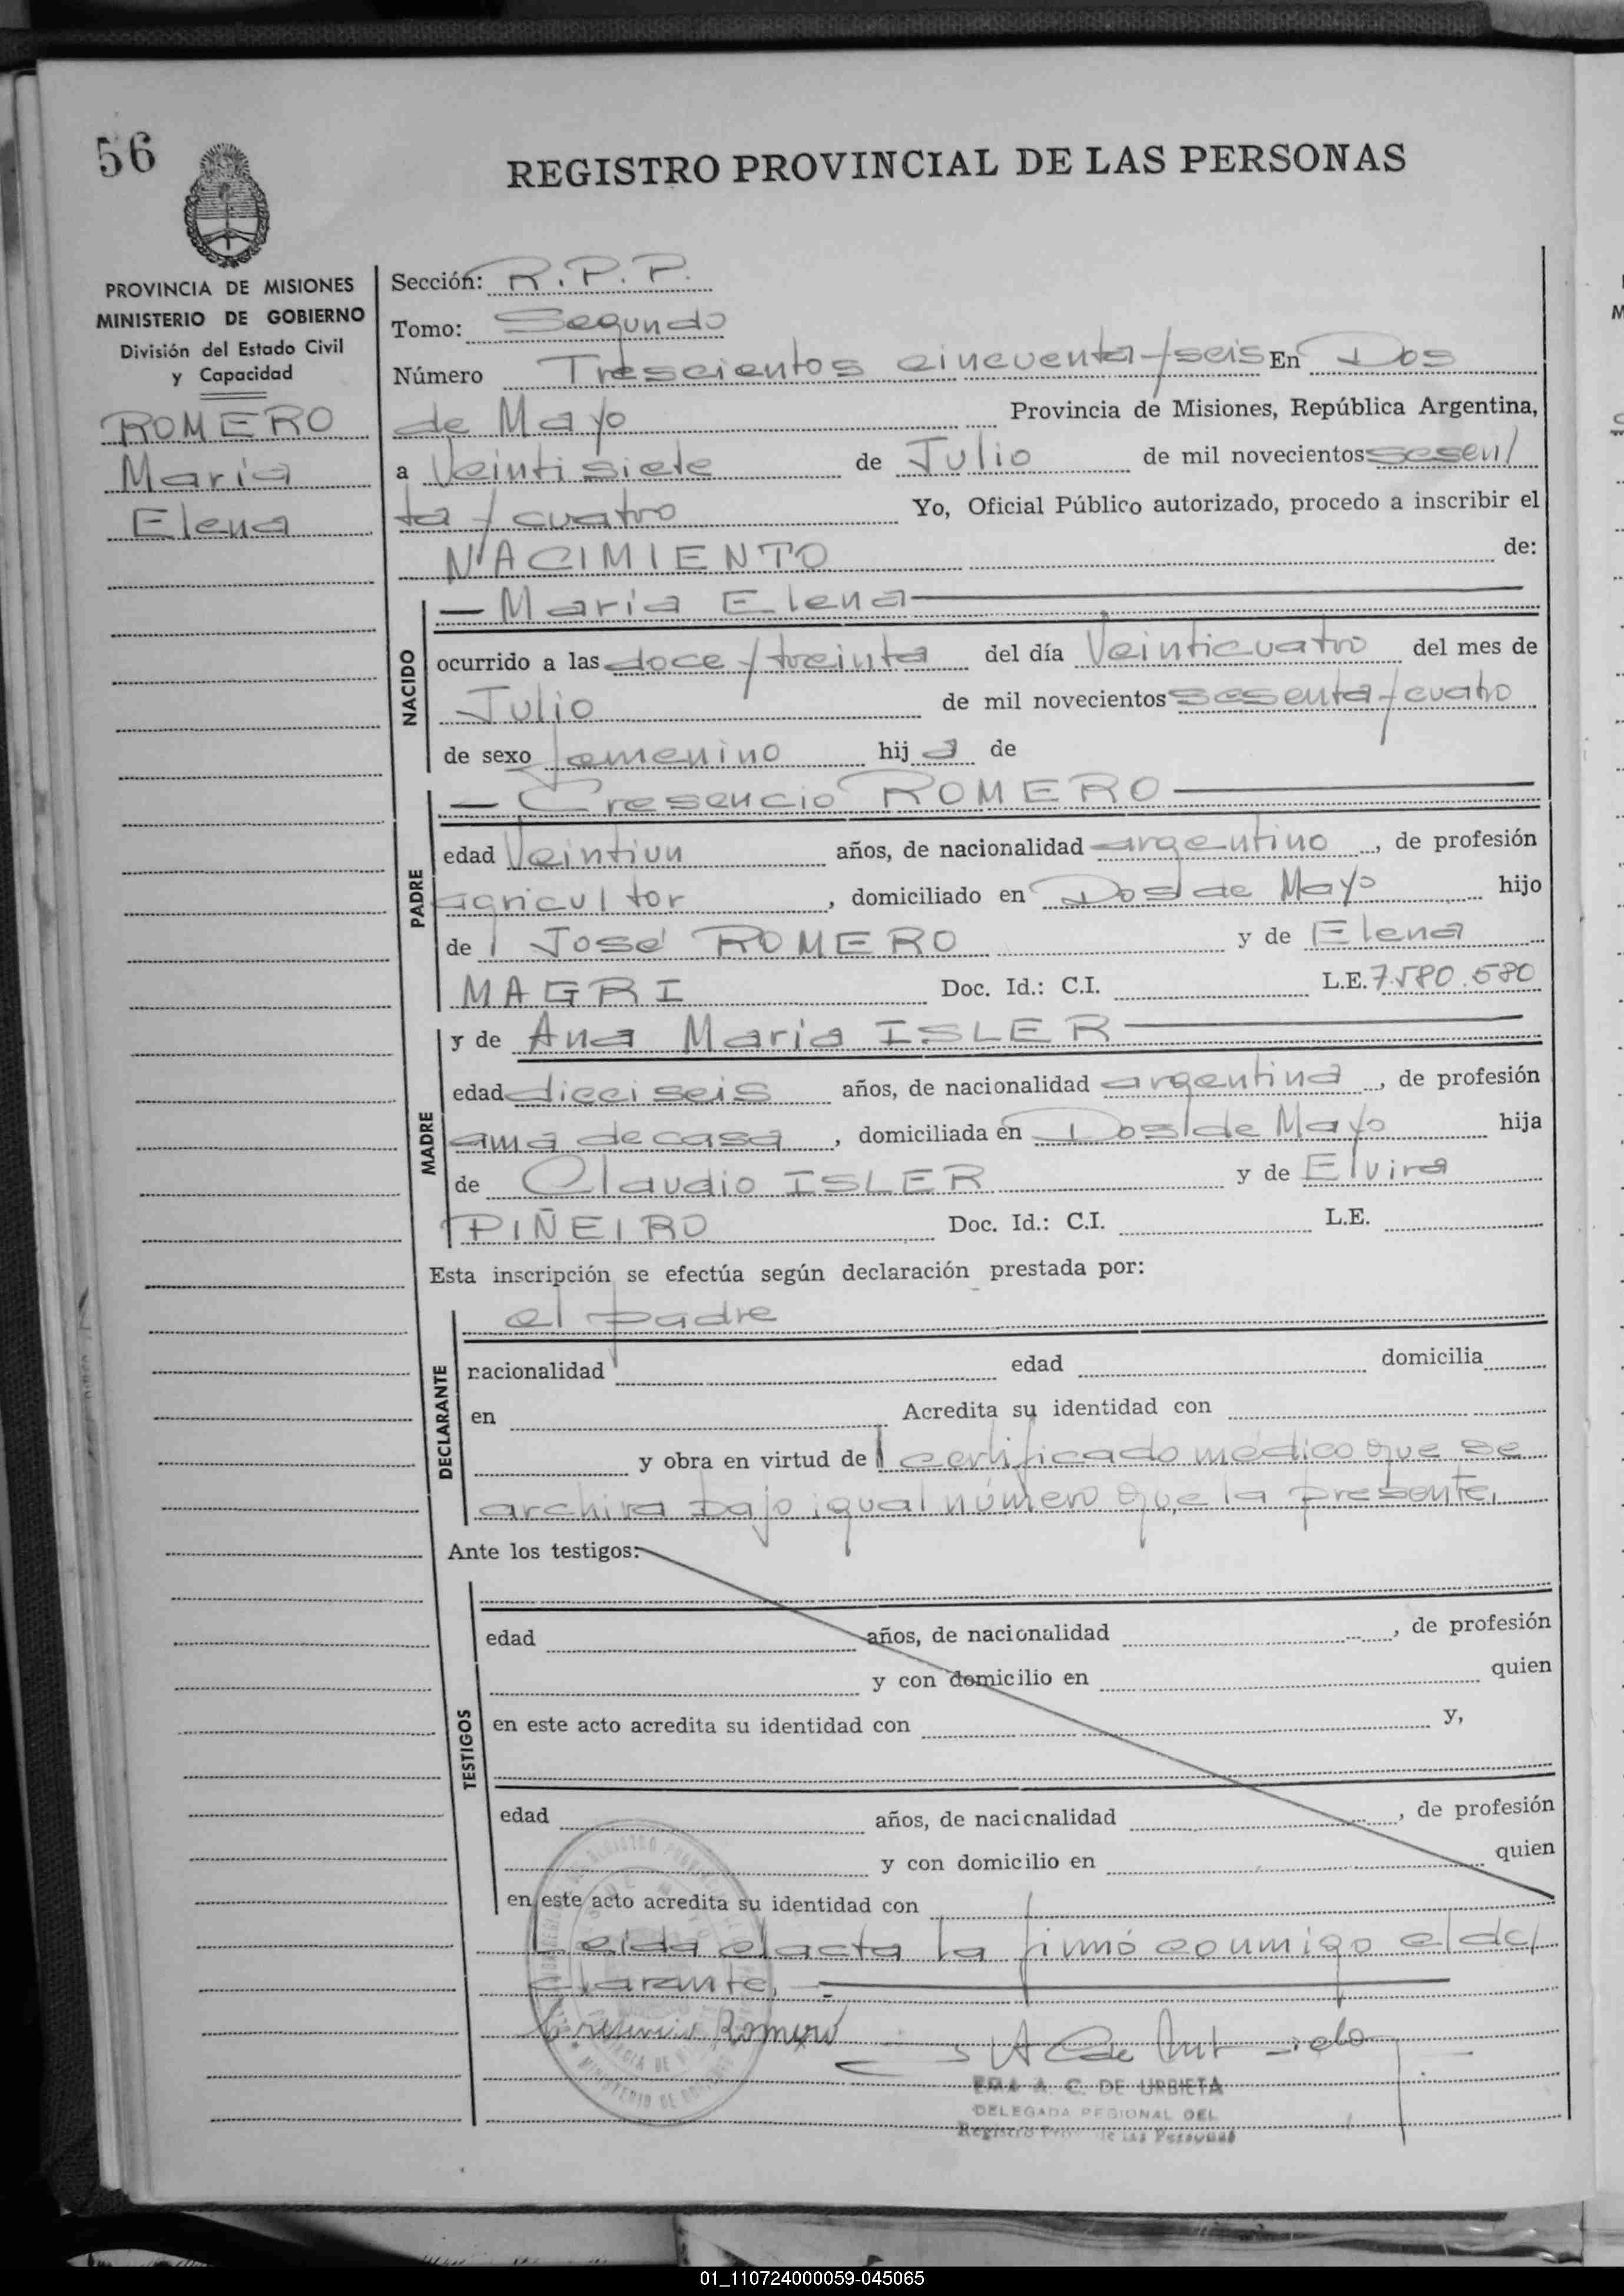 56
REGISTRO PROVINCIAL DE LAS PERSONAS
PROVINCIA DE MISIONES
MINISTERIO DE GOBIERNO
División del Estado Civil
y Capacidad
ROMERO
Maria
Elena
Sección: R.P.P.
Tomo: Segundo
Número Trescientos cincuenta y seis En Dos
de Mayo Provincia de Misiones, República Argentina,
a Veintisiete de Julio de mil novecientos sesen/
ta y cuatro Yo, Oficial Público autorizado, procedo a inscribir el
NACIMIENTO de:
NACIDO
— Maria Elena —
ocurrido a las doce y treinta del día Veinticuatro del mes de
Julio de mil novecientos sesenta y cuatro
de sexo femenino hij a de
PADRE
— Cresencio ROMERO —
edad Veintiun años, de nacionalidad argentino, de profesión
agricultor, domiciliado en Dos de Mayo hijo
de José ROMERO y de Elena
MAGRI Doc. Id.: C.I. L.E. 7.580.580
MADRE
y de Ana Maria ISLER —
edad dieciseis años, de nacionalidad argentina, de profesión
ama de casa, domiciliada en Dos de Mayo hija
de Claudio ISLER y de Elvira
PIÑEIRO Doc. Id.: C.I. L.E.
Esta inscripción se efectúa según declaración prestada por:
DECLARANTE
el padre
nacionalidad edad domicilia
en Acredita su identidad con
y obra en virtud de certificado médico que se
archiva bajo igual número que la presente.
Ante los testigos:
TESTIGOS
edad años, de nacionalidad , de profesión
y con domicilio en quien
en este acto acredita su identidad con y,
edad años, de nacionalidad , de profesión
y con domicilio en quien
en este acto acredita su identidad con
Leida el acta la firmó conmigo el de/
clarante. —
Cresencio Romero
EMA A. C. DE URBIETA
DELEGADA REGIONAL DEL
Registro de las Personas
01_110724000059-045065